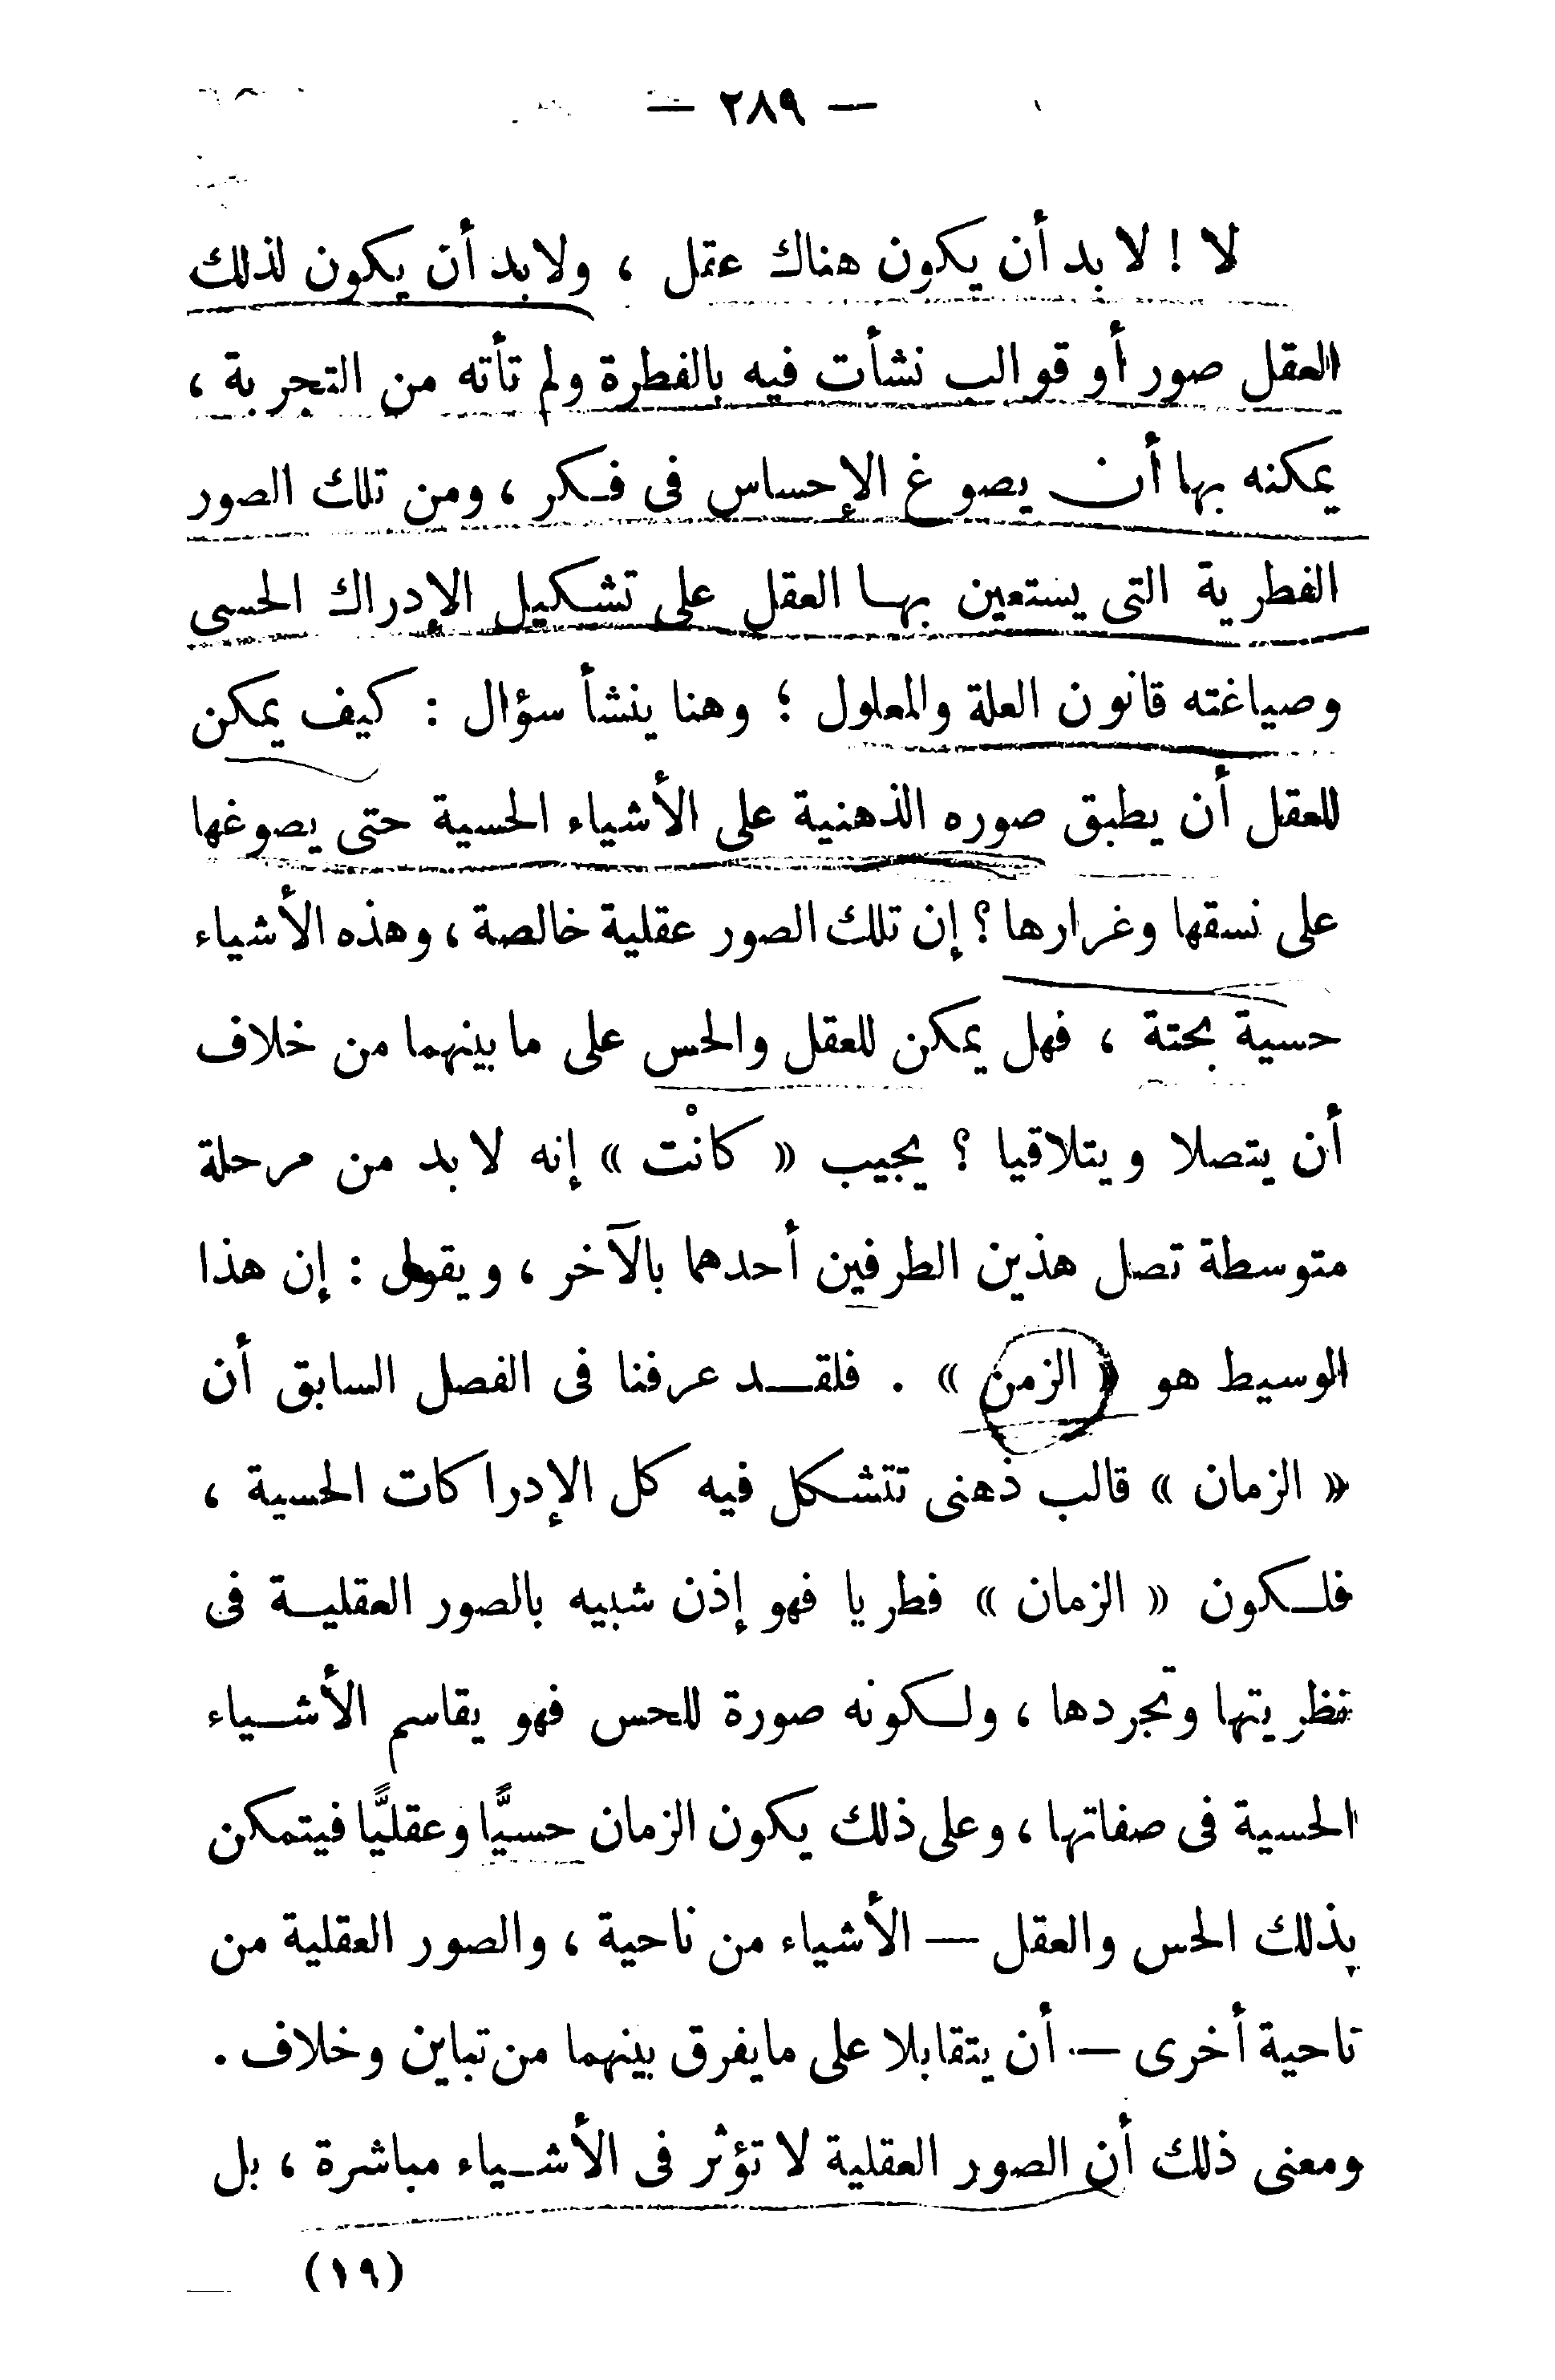 — ٢٨٩ —
لا ! لا بد أن يكون هناك عقل ، ولا بد أن يكون لذلك
العقل صور أو قوالب نشأت فيه بالفطرة ولم تأته من التجربة ،
يمكنه بها أن يصوغ الإحساس فى فكر ، ومن تلك الصور
الفطرية التى يستعين بها العقل على تشكيل الإدراك الحسى
وصياغته قانون العلة والمعلول ؛ وهنا ينشأ سؤال : كيف يمكن
للعقل أن يطبق صوره الذهنية على الأشياء الحسية حتى يصوغها
على نسقها وغرارها ؟ إن تلك الصور عقلية خالصة ، وهذه الأشياء
حسية بحتة ، فهل يمكن للعقل والحس على ما بينهما من خلاف
أن يتصلا ويتلاقيا ؟ يجيب « كانْت » إنه لا بد من مرحلة
متوسطة تصل هذين الطرفين أحدهما بالآخر ، ويقول : إن هذا
الوسيط هو « الزمن » . فلقد عرفنا فى الفصل السابق أن
« الزمان » قالب ذهنى تتشكل فيه كل الإدراكات الحسية ،
فلكون « الزمان » فطريا فهو إذن شبيه بالصور العقلية فى
نظريتها وتجردها ، ولكونه صورة للحس فهو يقاسم الأشياء
الحسية فى صفاتها ، وعلى ذلك يكون الزمان حسيًّا وعقليًّا فيتمكن
بذلك الحس والعقل — الأشياء من ناحية ، والصور العقلية من
ناحية أخرى — أن يتقابلا على ما يفرق بينهما من تباين وخلاف .
ومعنى ذلك أن الصور العقلية لا تؤثر فى الأشياء مباشرة ، بل
(١٩)